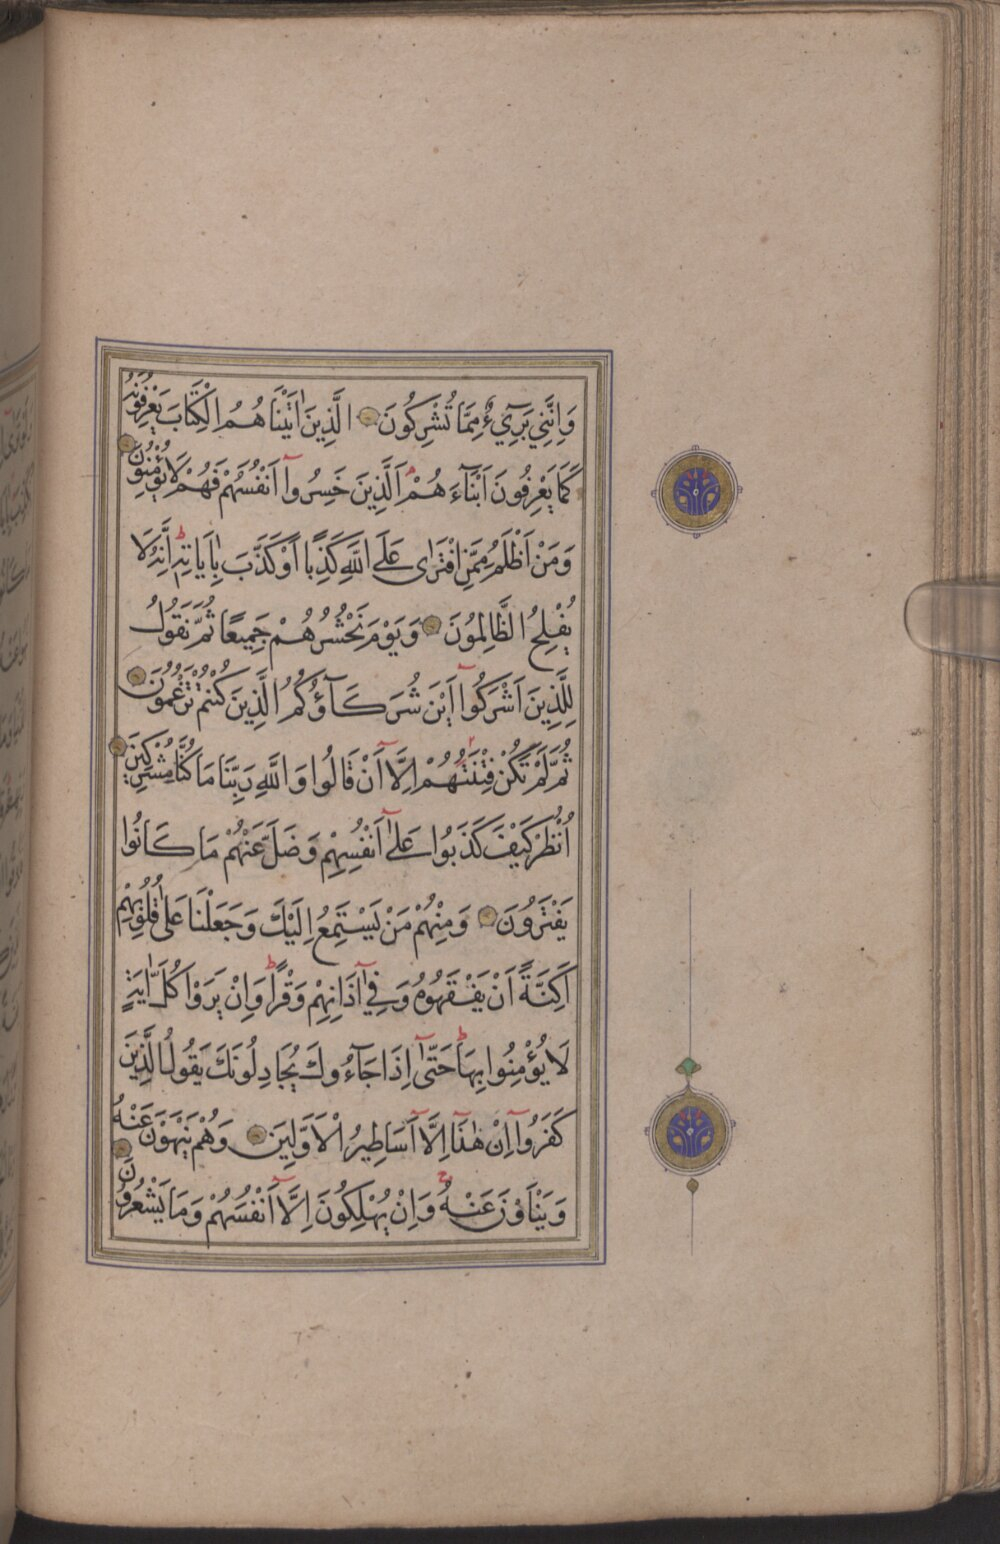 وَاِنَّنِي بَرِٓيءٌ مِمَّا تُشْرِكُونَ الَّذِينَ اٰتَيْنَاهُمُ الْكِتَابَ يَعْرِفُونَهُ
كَمَا يَعْرِفُونَ اَبْنَٓاءَهُمْ اَلَّذِينَ خَسِرُوا اَنْفُسَهُمْ فَهُمْ لَا يُؤْمِنُونَ
وَمَنْ اَظْلَمُ مِمَّنِ افْتَرٰى عَلَى اللّٰهِ كَذِبًا اَوْ كَذَّبَ بِاٰيَاتِهِ اِنَّهُ لَا
يُفْلِحُ الظَّالِمُونَ وَيَوْمَ نَحْشُرُهُمْ جَمِيعًا ثُمَّ نَقُولُ
لِلَّذِينَ اَشْرَكُوا اَيْنَ شُرَكَٓاؤُكُمُ الَّذِينَ كُنْتُمْ تَزْعُمُونَ
ثُمَّ لَمْ تَكُنْ فِتْنَتُهُمْ اِلَّا اَنْ قَالُوا وَاللّٰهِ رَبِّنَا مَا كُنَّا مُشْرِكِينَ
اُنْظُرْ كَيْفَ كَذَبُوا عَلٰى اَنْفُسِهِمْ وَضَلَّ عَنْهُمْ مَا كَانُوا
يَفْتَرُونَ وَمِنْهُمْ مَنْ يَسْتَمِعُ اِلَيْكَ وَجَعَلْنَا عَلٰى قُلُوبِهِمْ
اَكِنَّةً اَنْ يَفْقَهُوهُ وَفِي اٰذَانِهِمْ وَقْرًا وَاِنْ يَرَوْا كُلَّ اٰيَةٍ
لَا يُؤْمِنُوا بِهَا حَتّٰى اِذَا جَٓاءُوكَ يُجَادِلُونَكَ يَقُولُ الَّذِينَ
كَفَرُوا اِنْ هٰذَا اِلَّا اَسَاطِيرُ الْاَوَّلِينَ وَهُمْ يَنْهَوْنَ عَنْهُ
وَيَنْأَوْنَ عَنْهُ وَاِنْ يُهْلِكُونَ اِلَّا اَنْفُسَهُمْ وَمَا يَشْعُرُونَ